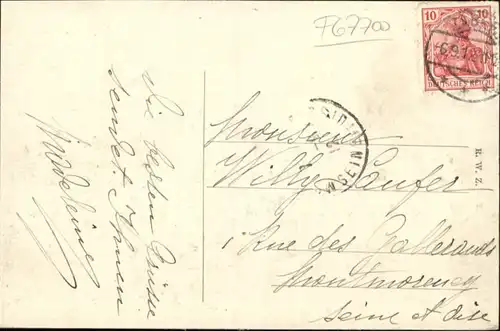 F67700
10 10
DEUTSCHES REICH
Die besten Grüsse
sendet Ihnen
Madeleine
Monsieur
Willy Laufer
1 Rue des Gallerands
Montmorency
Seine et Oise
R. W. Z.